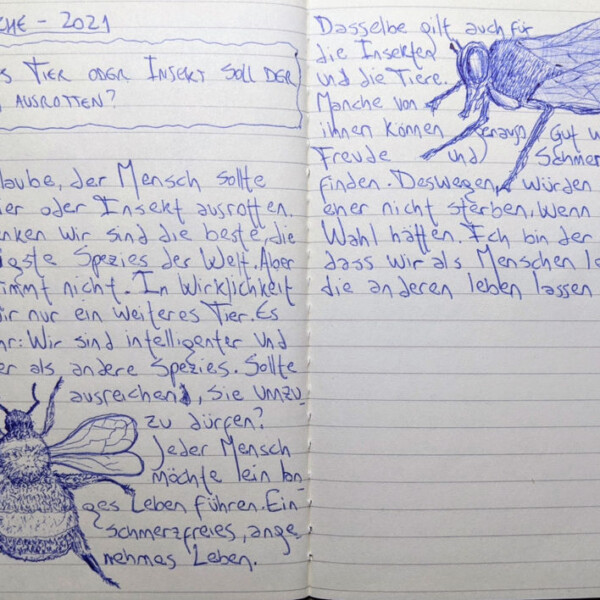 CHE - 2021
S TIER ODER INSEKT SOLL DER
AUSROTTEN?
laube, der Mensch sollte
ier oder Insekt ausrotten.
nken wir sind die beste, die
igste Spezies der Welt. Aber
immt nicht. In Wirklichkeit
ir nur ein weiteres Tier. Es
hr: Wir sind intelligenter und
er als andere Spezies. Sollte
ausreichend, sie umzu-
zu dürfen?
Jeder Mensch
möchte lein lan-
ges Leben führen. Ein
schmerzfreies, ange
nehmes Leben.
Dasselbe gilt auch für
die Insekten
und die Tiere.
Manche von
ihnen können genauso gut w
Freude und Schmer
finden. Deswegen würden
eher nicht sterben, wenn
Wahl hätten. Ich bin der
dass wir als Menschen le
die anderen leben lassen